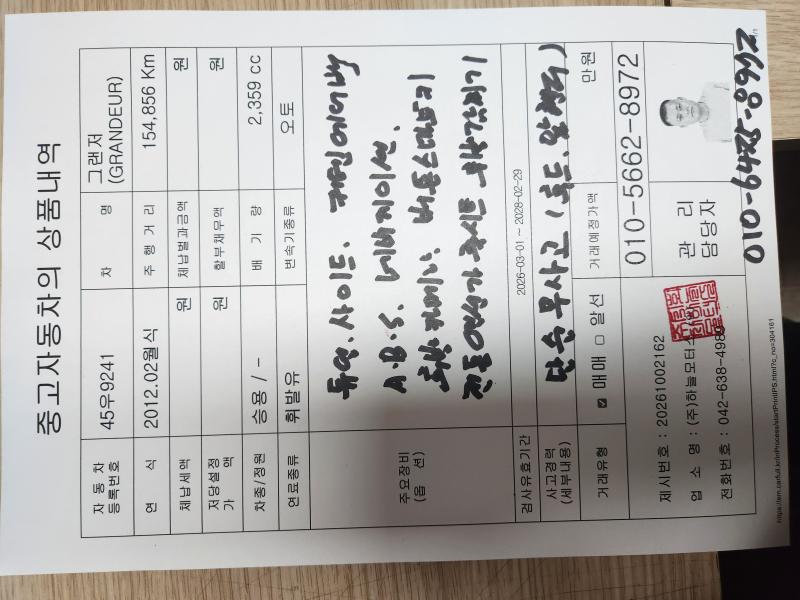 중고자동차의 상품내역
자동차 등록번호 45우9241 차 명 그랜저 (GRANDEUR)
연 식 2012.02월식 주 행 거 리 154,856 Km
체납세액 원 체납벌과금액 원
저당설정 가 액 원 할부채무액 원
차종/정원 승용 / - 배 기 량 2,359 cc
연료종류 휘발유 변속기종류 오토
주요장비 (옵 션)
듀얼.사이드. 커튼에어백
A.B.S. 네비게이션.
후방 카메라. 버튼스마트키
전동 열선가죽시트 후방감지기
검사유효기간 2026-03-01 ~ 2028-02-29
사고경력 (세부내용) 단순 무사고 (후드.앞휀더)
거래유형 ☑ 매매 □ 알선 거래예정가액 만원
제시번호 : 20261002162
업 소 명 : (주)하늘모터스
전화번호 : 042-638-498
010-5662-8972
관 리 담당자
010-6425-8992
1/1